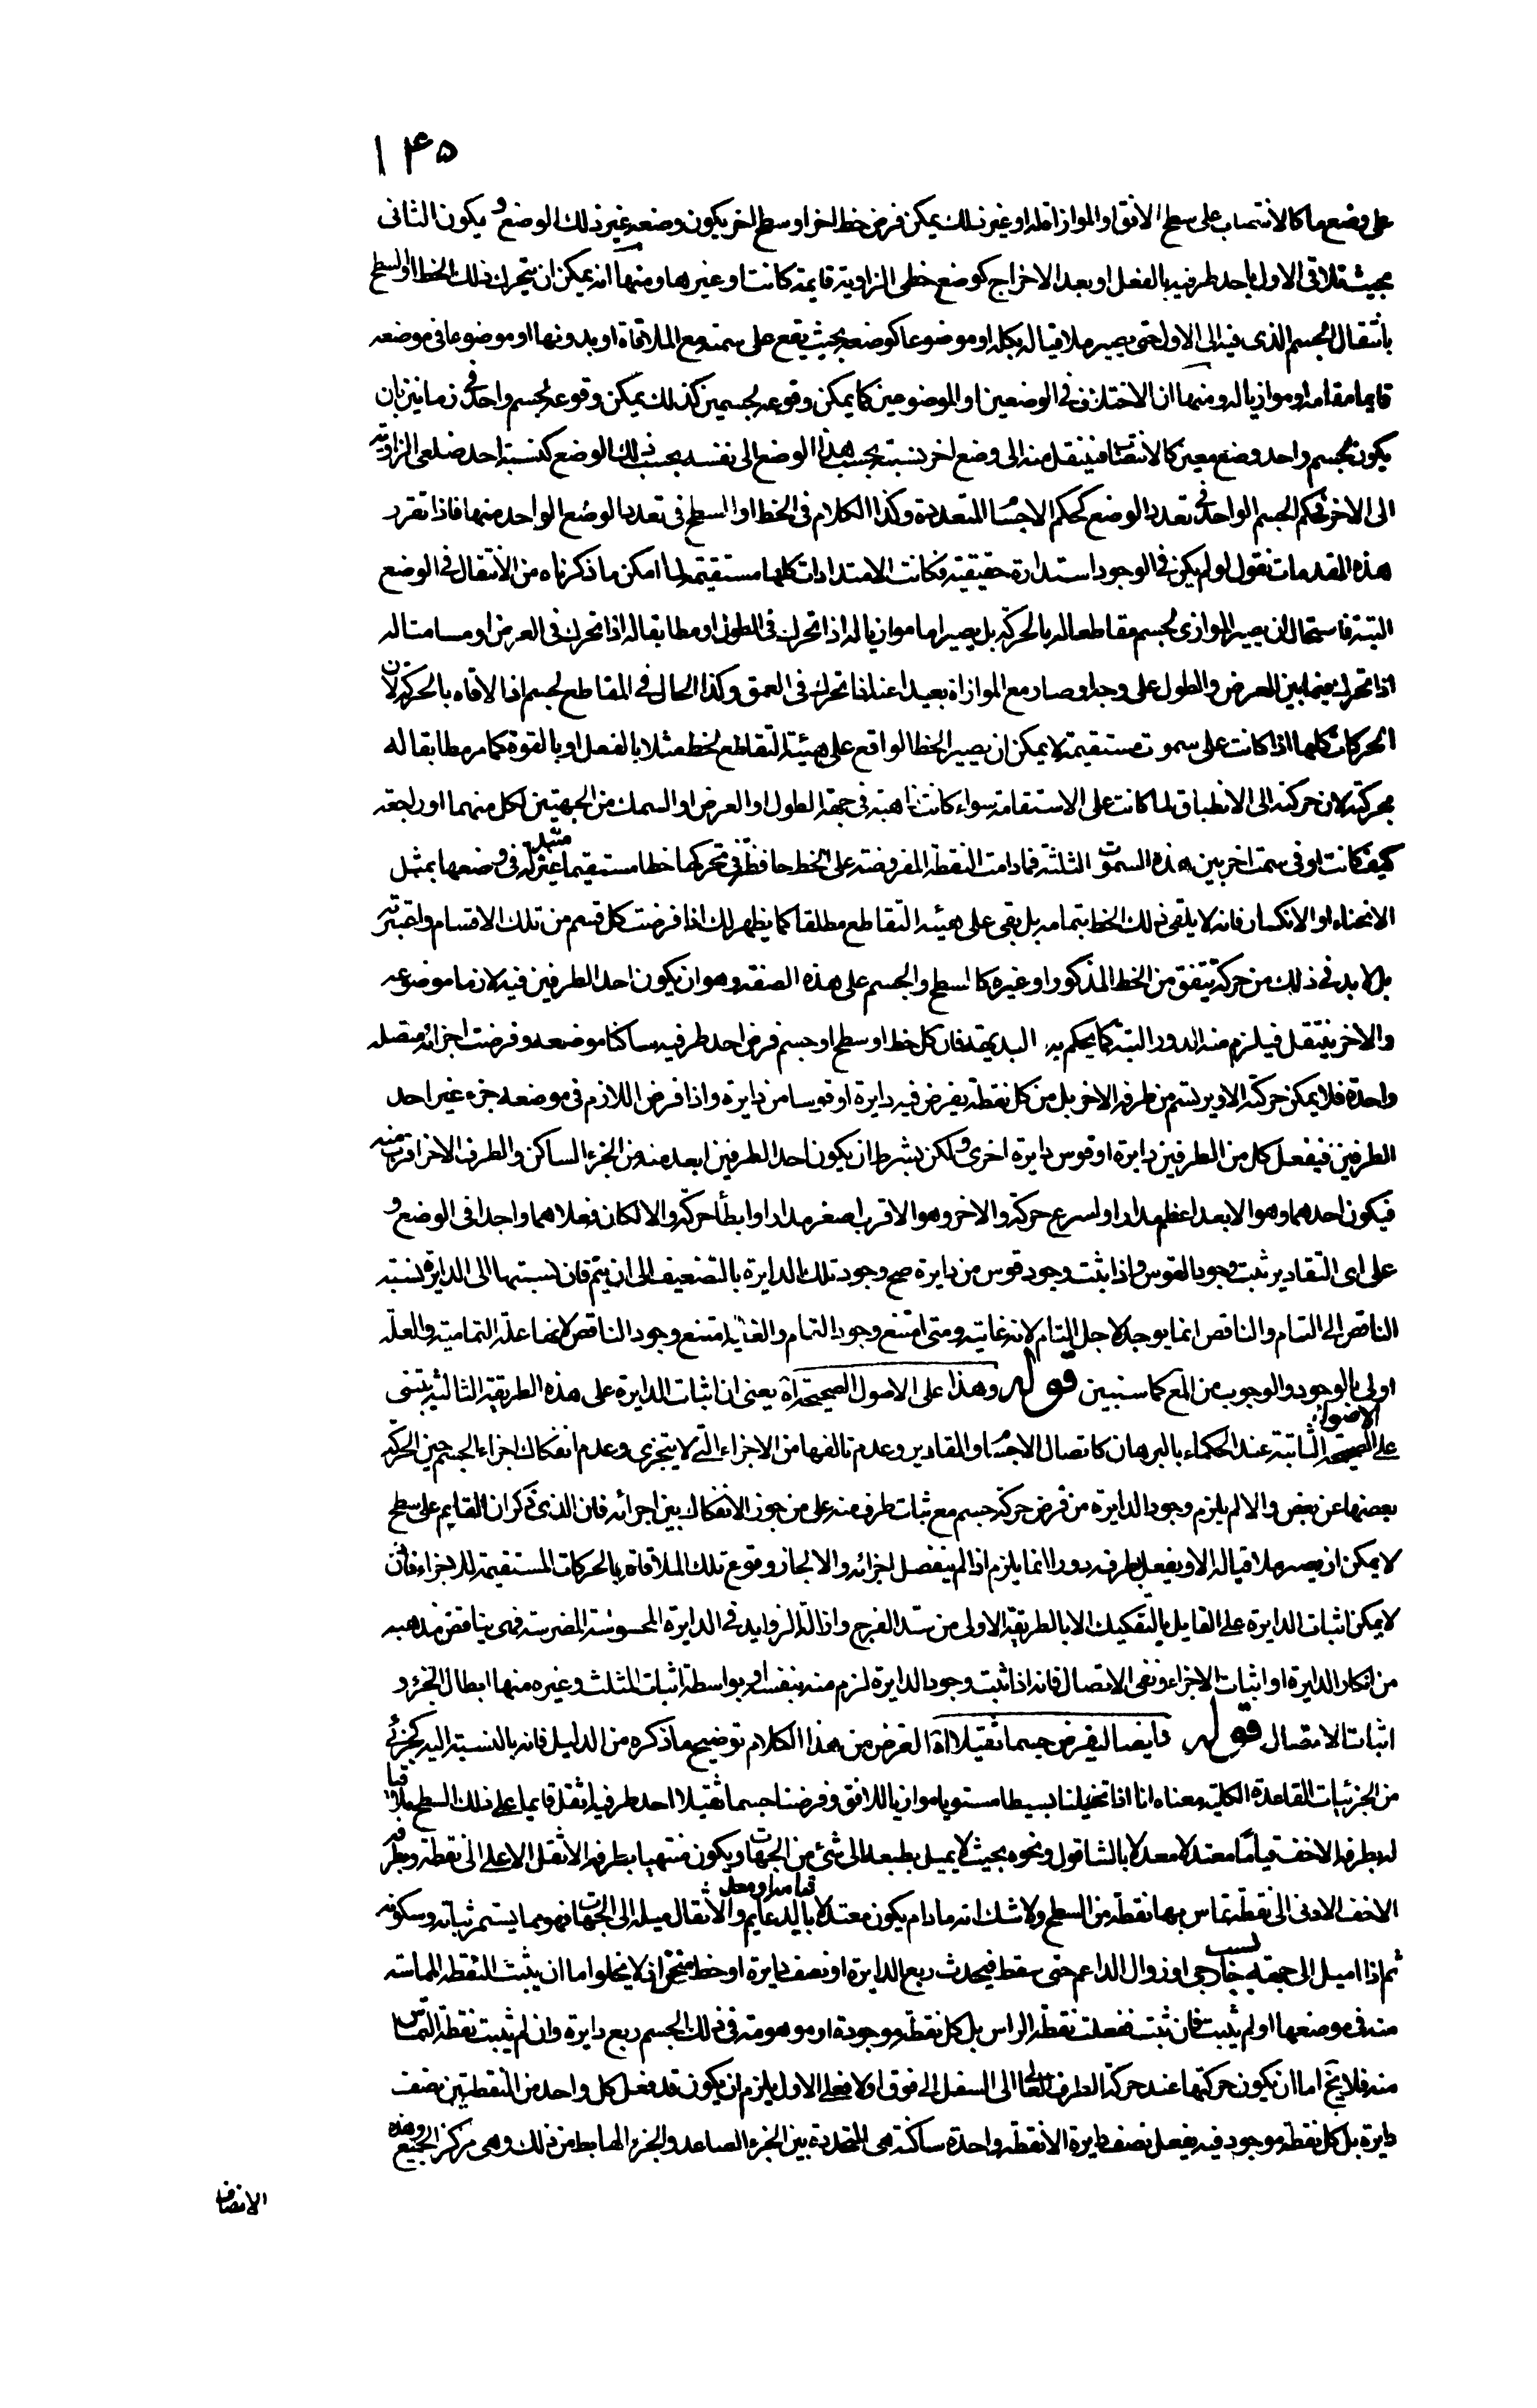 ۱۴۵
على وضع ما كالانتصاب على سطح الافق او الموازاة له او غير ذلك يمكن فرض خط اخر او سطح اخر يكون وضعه غير ذلك الوضع و يكون الثانى
بحيث يلاقى الاول باحد طرفيه بالفعل او بعد الاخراج كوضع خطى الزاوية قايمة كانت او غيرها ومنها انه يمكن ان يتحرك ذلك الخط او السطح
بانتقال الجسم الذى فيه الى الاول حتى يصير ملاقيا له بكله او موضوعا كوضعه بحيث يقع على سمته مع الملاقاة او بدونها او موضوعا فى موضعه
قايما مقامه او موازيا له ومنها ان الاختلاف فى الوضعين او الموضوعين كما يمكن وقوعه لجسمين كذلك يمكن وقوعه لجسم واحد فى زمانين بان
يكون لجسم واحد وضع معين كالانتصاب فينتقل منه الى وضع اخر نسبته بحسب هذا الوضع الى نفسه بحسب ذلك الوضع كنسبة احد ضلعى الزاوية
الى الاخر فحكم الجسم الواحد فى تعدد الوضع كحكم الاجسام المتعددة وكذا الكلام فى الخط او السطح فى تعدد الوضع الواحد منها فاذا تقرر
هذه المقدمات نقول لو لم يكن فى الوجود استدارة حقيقية فكانت الامتدادات كلها مستقيمة لما امكن ما ذكرناه من الانتقال فى الوضع
البتة فاستحال ان يصير الموازى لجسم مقاطعا له بالحركة بل يصير اما موازيا له اذا تحرك فى الطول او مطابقا له اذا تحرك فى العرض او مسامتا له
اذا تحرك فيما بين العرض والطول على وجه او صار مع الموازاة بعيدا عنه اذا تحرك فى العمق وكذا الحال فى المقاطع لجسم اذا لاقاه بالحركة لان
الحركات كلها اذا كانت على سموت مستقيمة لا يمكن ان يصير الخط الواقع على هيئة التقاطع لخط مثلا بالفعل او بالقوة كما مر مطابقا له
بحركته لان حركته الى الانطباق لما كانت على الاستقامة سواء كانت ذاهبة فى جهة الطول او العرض او السمك من الجهتين لكل منهما او راجعة
كيف كانت او فى سمت اخر بين هذه السموت الثلثة فما دامت النقطة المفروضة على الخط حافظة فى تحركها خطا مستقيما غير متبدلة فى وضعها بمثل
الانحناء او الانكسار فانه لا يلقى ذلك الخط بتمامه بل بقى على هيئة التقاطع مطلقا كما يظهر لك اذا فرضت كل قسم من تلك الاقسام واعتبرته
بل لا بد فى ذلك من حركة تتفق من الخط المذكور او غيره كالسطح والجسم على هذه الصفة وهو ان يكون احد الطرفين فيه لازما موضعه
والاخر ينتقل فيلزم منه الدور البتة كما يحكم به البديهة فان كل خط او سطح او جسم فرض احد طرفيه ساكنا موضعه وفرضت اجزائه متصلة
واحدة فلا يمكن حركته الا ويرتسم من طرفه الاخر بل من كل نقطة يفرض فيه دايرة او قوسا من دايرة واذا فرض اللازم فى موضعه جزء غير احد
الطرفين فيفعل كل من الطرفين دايرة او قوس دايرة اخرى ولكن بشرط ان يكون احد الطرفين ابعد منه من الجزء الساكن والطرف الاخر اقرب منه
فيكون احدهما وهو الابعد اعظم مدارا واسرع حركة والاخر وهو الاقرب اصغر مدارا وابطأ حركة والا لكان فعلاهما واحدا فى الوضع و
على اى التقادير ثبت وجود القوس واذا ثبت وجود قوس من دايرة صح وجود تلك الدايرة بالتضعيف الى ان يتم فان نسبتها الى الدايرة نسبة
الناقص الى التام والناقص انما يوجد لاجل التام لانه غايته ومتى امتنع وجود التمام والغاية امتنع وجود الناقص لانها علة التمامية والعلة
اولى بالوجود والوجوب من المع كما سنبين قوله وهذا على الاصول الصحيحة اة يعنى ان اثبات الدايرة على هذه الطريقة الثالثة يبتنى
على الاصول الصحيحة الثابتة عند الحكماء بالبرهان كاتصال الاجسام والمقادير وعدم تالفها من الاجزاء التى لا يتجزى وعدم انفكاك اجزاء الجسم حين الحركة
بعضها عن بعض والا لم يلزم وجود الدايرة من فرض حركة جسم مع ثبات طرف منه على من جوز الانفكاك بين اجزائه فان الذى ذكر ان القايم على سطح
لا يمكن ان يصير ملاقيا له الا ويفعل بطرفه دورا انما يلزم اذا لم ينفصل اجزائه والا لجاز وقوع تلك الملاقاة بالحركات المستقيمة للاجزاء فاذن
لا يمكن اثبات الدايرة على القايل بالتفكيك الا بالطريقة الاولى من سد الفرج وازالة الزوايد فى الدايرة المحسوسة المضرسة فهى يناقض مذهبه
من انكار الدايرة او اثبات الاجزاء ونفى الاتصال فانه اذا ثبت وجود الدايرة لزم منه بنفسه او بواسطة اثبات المثلث وغيره منها ابطال الجزء و
اثبات الاتصال قوله وايضا ليفرض جسما ثقيلا اة الغرض من هذا الكلام توضيح ما ذكره من الدليل فانه بالنسبة اليه كجزئى
من الجزئيات القاعدة الكلية معناه انا اذا تخيلنا بسيطا مستويا موازيا للافق وفرضنا جسما ثقيلا احد طرفيه اثقل قايما على ذلك السطح ملاقيا
له بطرفه الاخف قياما معتدلا معدلا بالشاقول ونحوه بحيث لا يميل بطبعه الى شئ من الجهات ويكون منتهيا بطرفه الاثقل الاعلى الى نقطة وبطرفه
الاخف الادنى الى نقطة تماس بها نقطة من السطح ولا شك انه ما دام يكون معتدلا قيامه ومعدلا بالدعايم والاثقال ميله الى الجهات فهو مما يستمر ثباته وسكونه
ثم اذا اميل الى جهة بسبب خارجى او زوال الداعم حتى سقط فيحدث ربع الدايرة او نصف دايرة او خط منحن اذ لا يخلو اما ان يثبت النقطة المماسة
منه فى موضعها او لم يثبت فان ثبت ففعلت نقطة الراس بل كل نقطة موجودة او موهومة فى ذلك الجسم ربع دايرة وان لم يثبت نقطة التماس
منه فلا يخ اما ان يكون حركتها عند حركة الطرف العالى الى السفل الى فوق اولا فعلى الاول يلزم ان يكون قد فعل كل واحد من النقطتين نصف
دايرة بل كل نقطة موجود فيه يفعل نصف دايرة الا نقطة واحدة ساكنة هى المتحددة بين الجزء الصاعد والجزء الهابط من ذلك وهى مركز الجميع وهذه
الانصاف